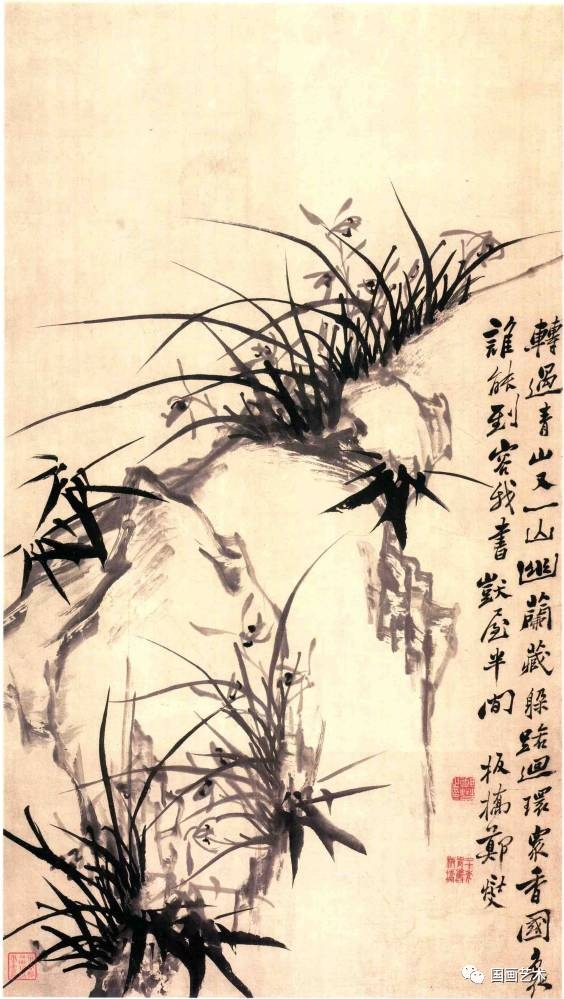 轉過青山又一山幽蘭藏躲路迴環衆香國裏
誰能到容我書獃屋半間 板橋鄭燮
国画艺术